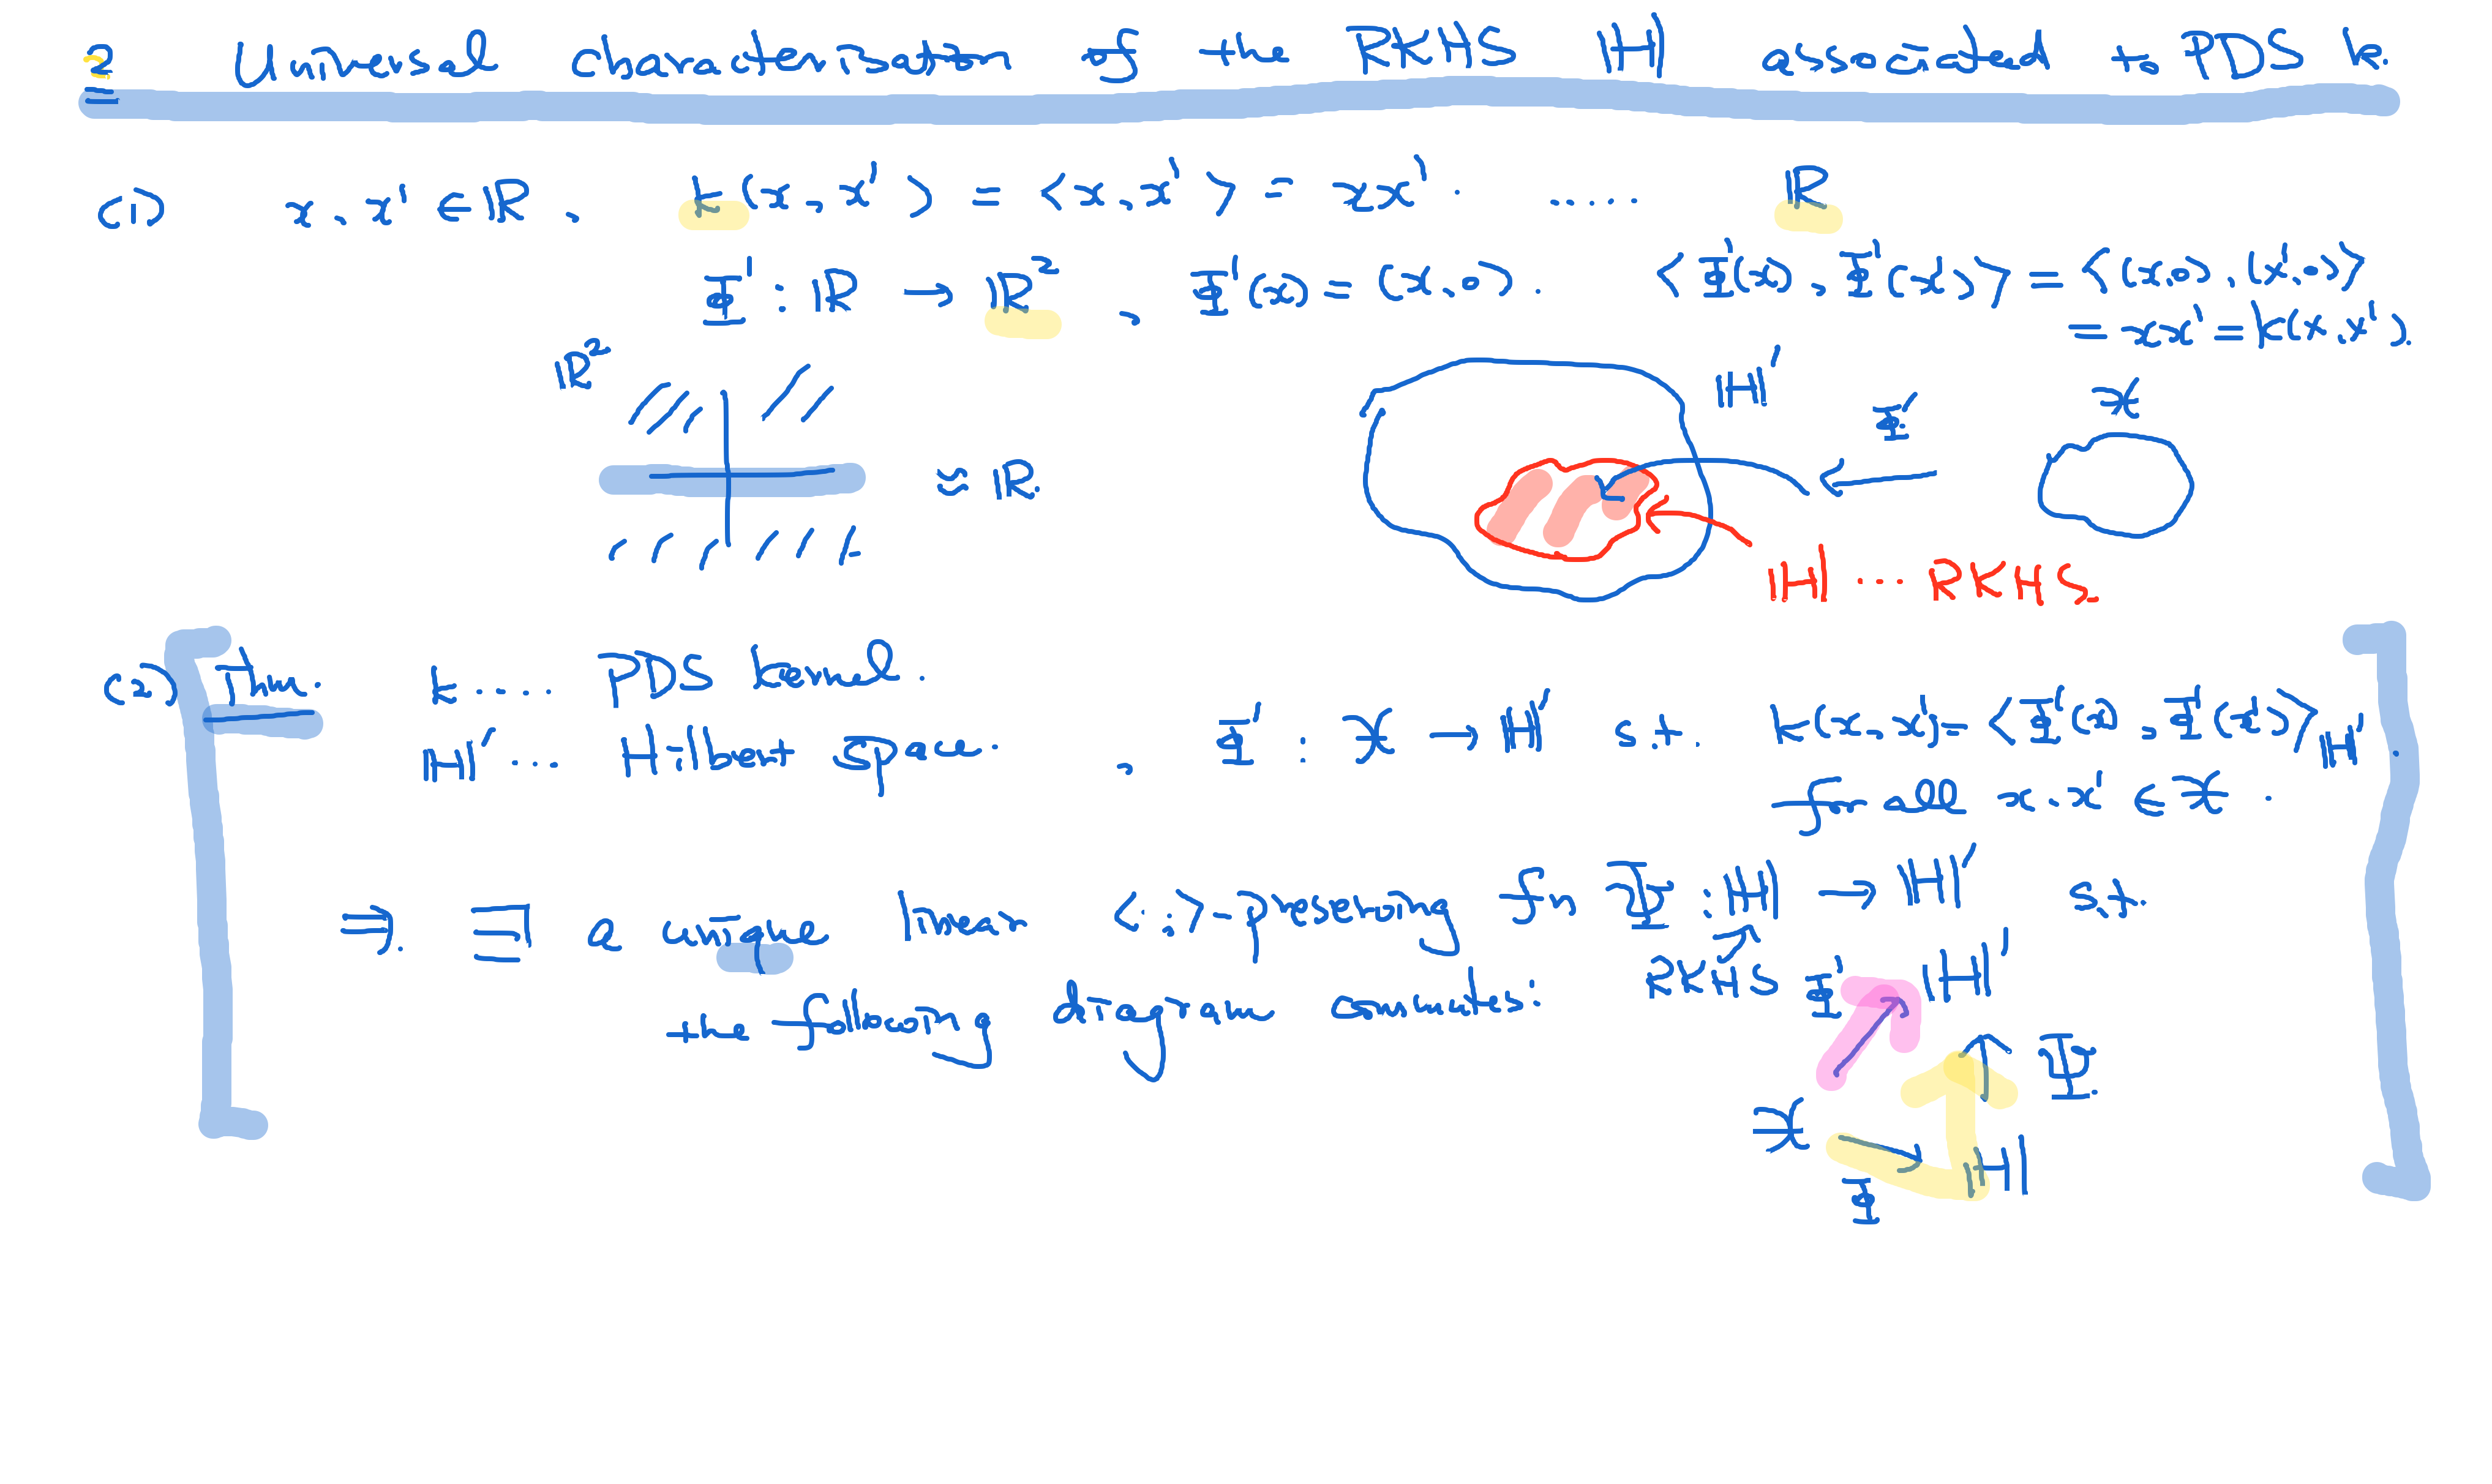 2 Universal characterization of the RKHS ℍ associated to PDS k.
(1) x, x' ∈ ℝ, k(x, x') = <x, x'> = xx'. ..... ℝ
Φ' : ℝ → ℝ², Φ'(x) = (x, 0). <Φ'(x), Φ'(x')> = <(x,0), (x',0)>
= xx' = k(x,x').
ℝ²
≈ ℝ.
ℍ'
Φ'
𝒳
ℍ ... RKHS.
(2) Thm. k .... PDS kernel.
ℍ' ... Hilbert space. , Φ' : 𝒳 → ℍ' s.t. k(x, x') = <Φ'(x), Φ'(x')>ℍ'.
for all x, x' ∈ 𝒳.
⇒. ∃ a unique linear <·,·>-preserving fn Ψ : ℍ → ℍ' s.t.
RKHS
the following diagram commutes:
Φ' ℍ'
Ψ.
𝒳
ℍ
Φ